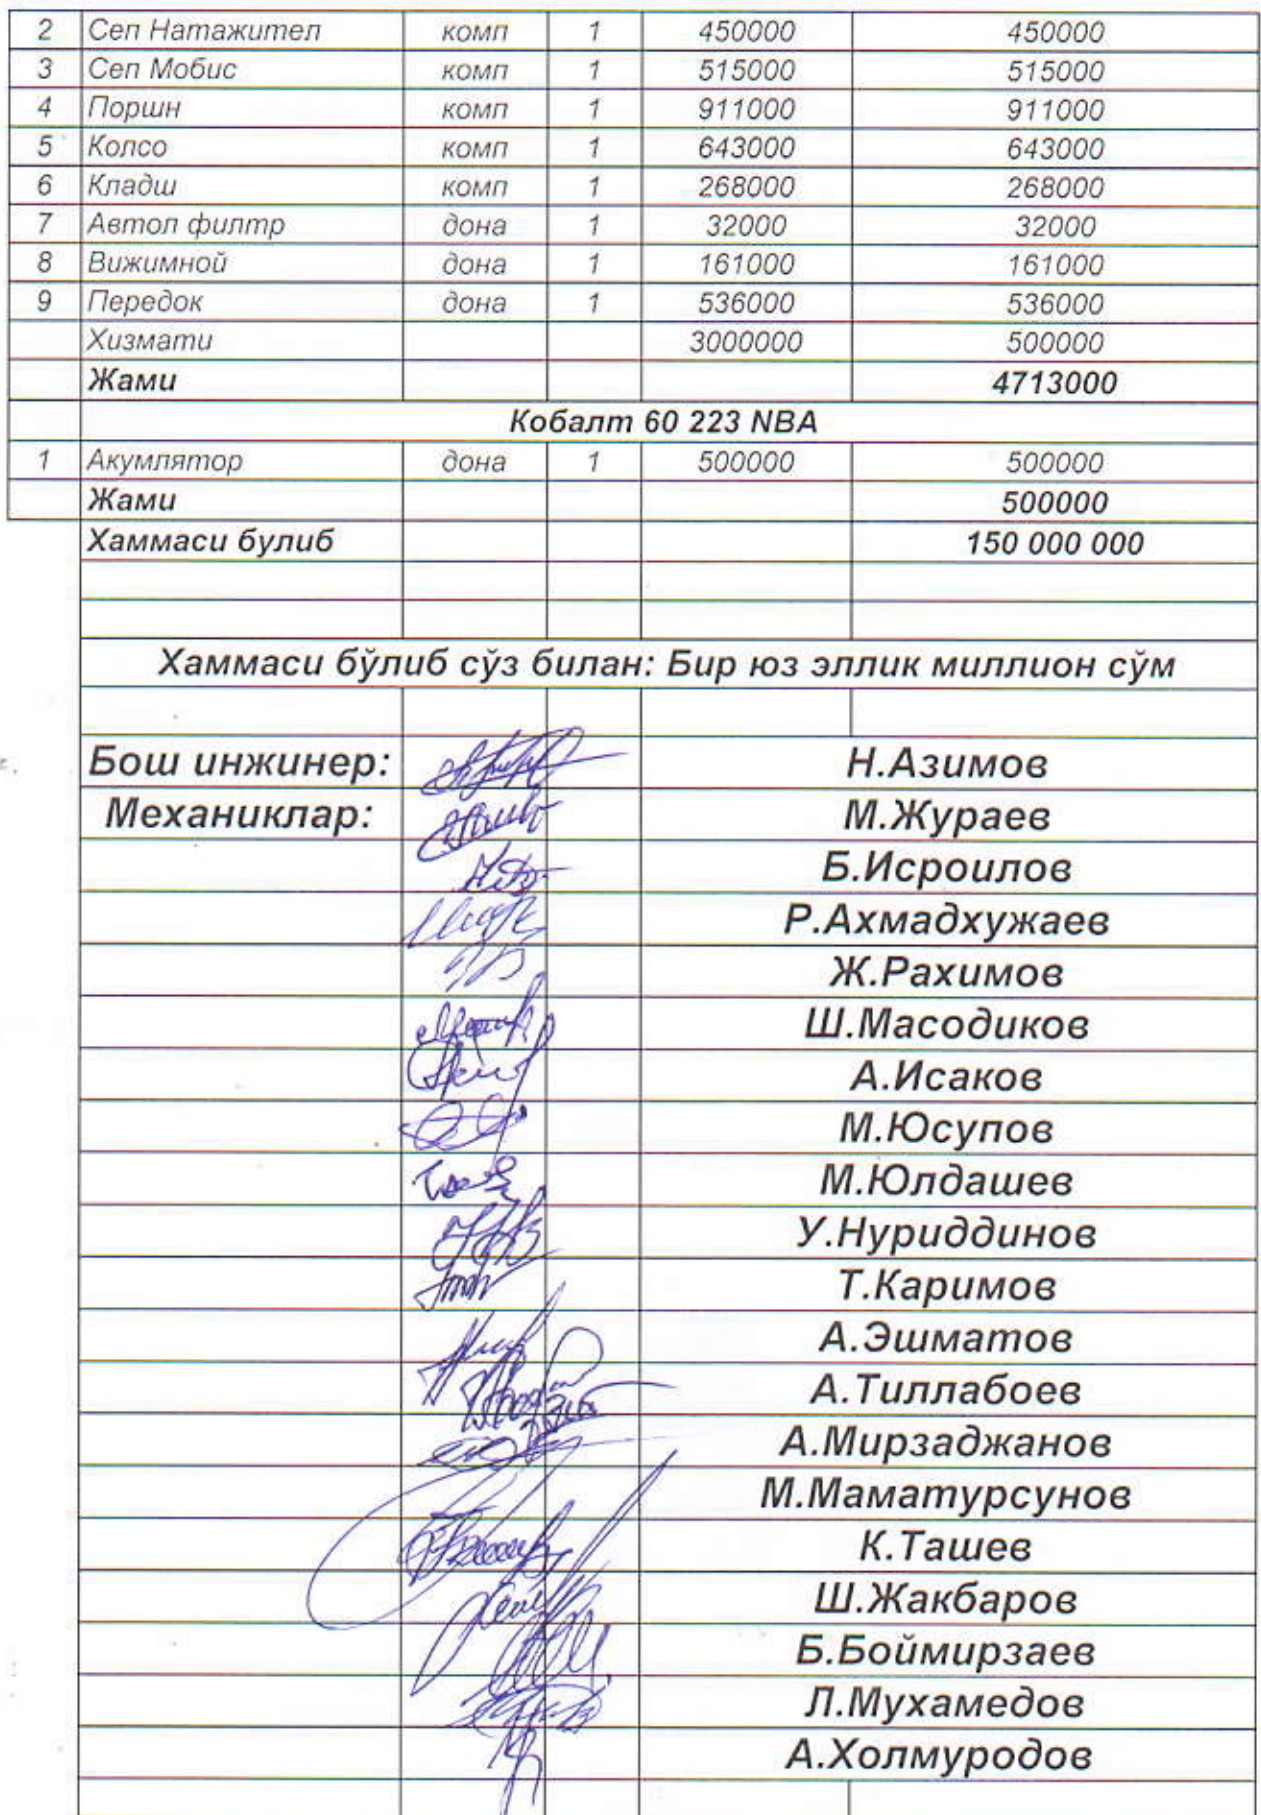 2 Сеп Натажител комп 1 450000 450000
3 Сеп Мобис комп 1 515000 515000
4 Поршн комп 1 911000 911000
5 Колсо комп 1 643000 643000
6 Кладш комп 1 268000 268000
7 Автол филтр дона 1 32000 32000
8 Вижимной дона 1 161000 161000
9 Передок дона 1 536000 536000
Хизмати 3000000 500000
Жами 4713000
Кобалт 60 223 NBA
1 Акумлятор дона 1 500000 500000
Жами 500000
Хаммаси булиб 150 000 000
Хаммаси бўлиб сўз билан: Бир юз эллик миллион сўм
Бош инжинер: Н.Азимов
Механиклар: М.Жураев
Б.Исроилов
Р.Ахмадхужаев
Ж.Рахимов
Ш.Масодиков
А.Исаков
М.Юсупов
М.Юлдашев
У.Нуриддинов
Т.Каримов
А.Эшматов
А.Тиллабоев
А.Мирзаджанов
М.Маматурсунов
К.Ташев
Ш.Жакбаров
Б.Боймирзаев
Л.Мухамедов
А.Холмуродов